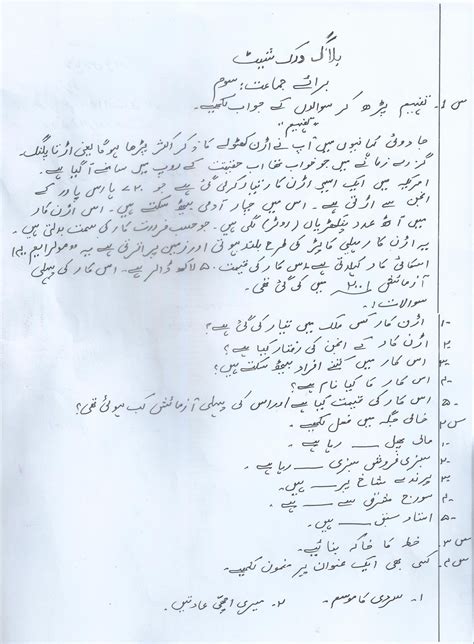 بلاگ ورک شیٹ
برائے جماعت: سوم
س ۱۔ تفہیم پڑھ کر سوالوں کے جواب لکھیے۔
"تفہیم"
جادوئی کہانیوں میں آپ نے اڑن کھٹولے کا ذکر اکثر پڑھا ہوگا یعنی اڑتا پلنگ۔
گزرے زمانے میں جو خواب تھی اب حقیقت کے روپ میں سامنے آ گیا ہے۔
امریکہ میں ایک ایسی اڑن کار تیار کر لی گئی ہے جو ۷۲۰ ہارس پاور کے
انجن سے اڑتی ہے۔ اس میں چار آدمی بیٹھ سکتے ہیں۔ اس اڑن کار
میں آٹھ عدد پنکھڑیاں (روٹر) لگی ہیں۔ جو حسب ضرورت کار کی سمت بدلتی ہیں۔
یہ اڑن کار ہیلی کاپٹر کی طرح بلند ہوتی اور زمین پر اترتی ہے یہ "مولر ایم ۴۰۰
اسکائی کار کہلاتی ہے۔ اس کار کی قیمت ۵۰ لاکھ ڈالر ہے۔ اس کار کی پہلی
آزمائش ۲۰۰۱ میں کی گئی تھی۔
سوالات:
۱۔ اڑن کار کس ملک میں تیار کی گئی ہے؟
۲۔ اڑن کار کے انجن کی رفتار کیا ہے؟
۳۔ اس کار میں کتنے افراد بیٹھ سکتے ہیں؟
۴۔ اس کار کا کیا نام ہے؟
۵۔ اس کار کی قیمت کیا ہے اور اس کی پہلی آزمائش کب ہوئی تھی؟
س ۲۔ خالی جگہ میں فعل لکھیے۔
۱۔ مالی پھل ____ رہا ہے۔
۲۔ سبزی فروش سبزی ____ رہا ہے۔
۳۔ پرندے شاخ پر ____ ہیں۔
۴۔ سورج مشرق سے ____ ہے۔
۵۔ استاد سبق ____ ہیں۔
س ۳۔ خط کا خاکہ بنائیے۔
س ۴۔ کسی بھی ایک عنوان پر مضمون لکھیے۔
۱۔ سردی کا موسم۔ ۲۔ میری اچھی عادتیں۔